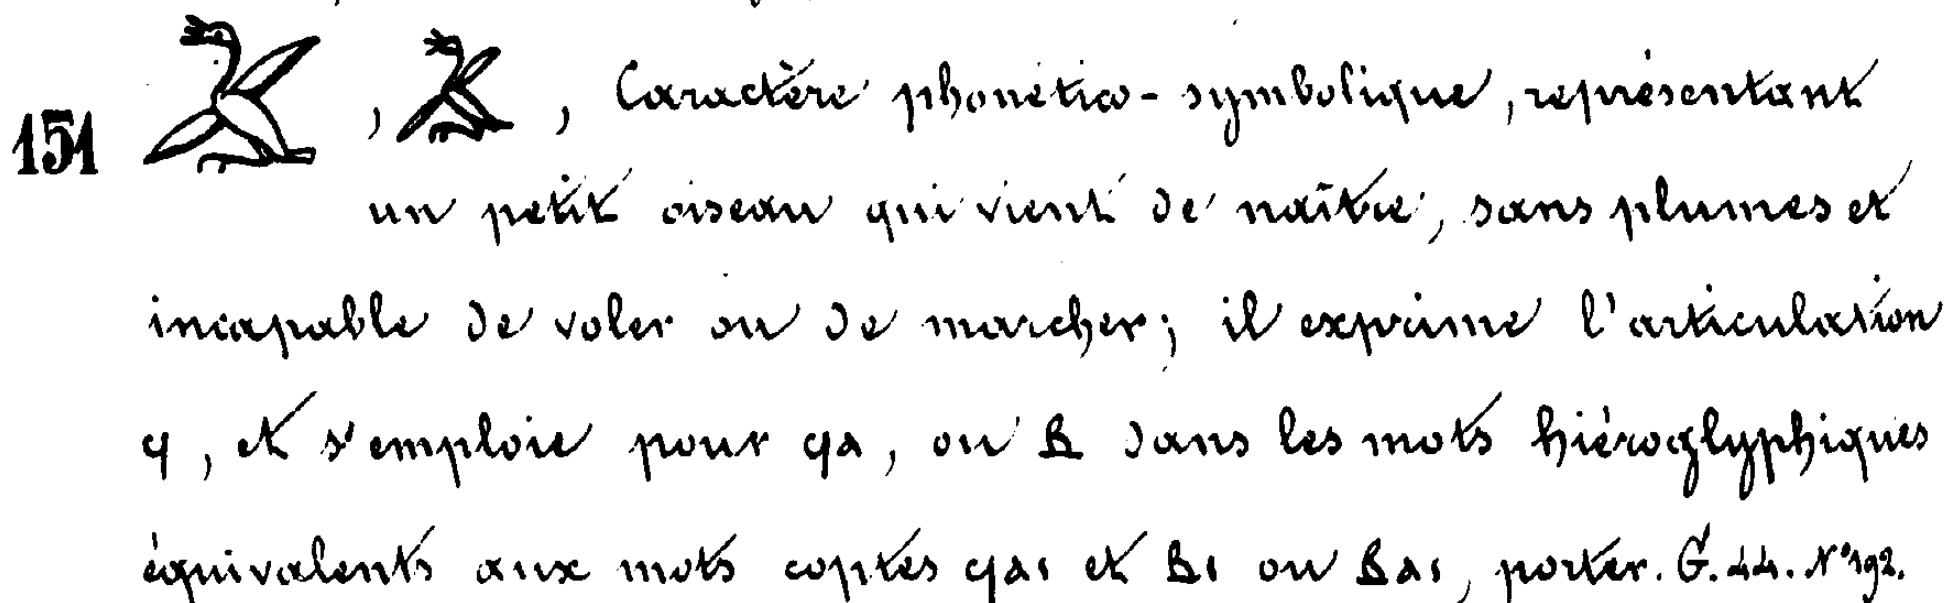 151 𓅷, 𓅷, Caractère phonético-symbolique, représentant
un petit oiseau qui vient de naître, sans plumes et
incapable de voler ou de marcher; il exprime l'articulation
ϥ, et s'emploie pour ϥⲁ, ou ⲃ dans les mots hiéroglyphiques
équivalents aux mots coptes ϥⲁⲓ et ⲃⲓ ou ⲃⲁⲓ, porter. G. 44. N° 192.